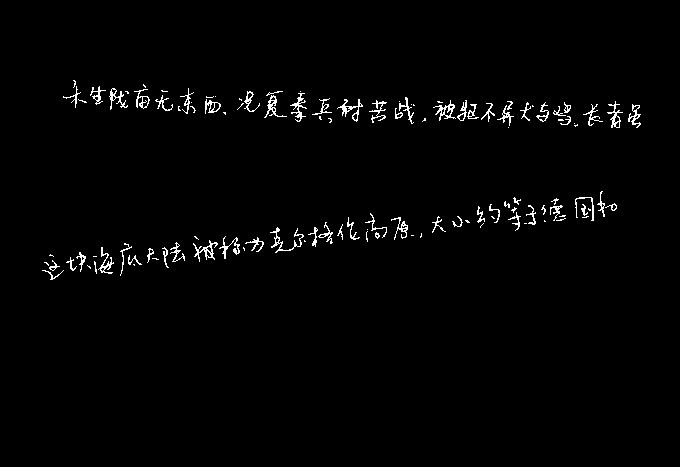 禾生陇亩无东西.况夏季兵耐苦战,被驱不异犬与鸡.长者虽
这块海底大陆被称为克尔格伦高原,大小约等于德国和